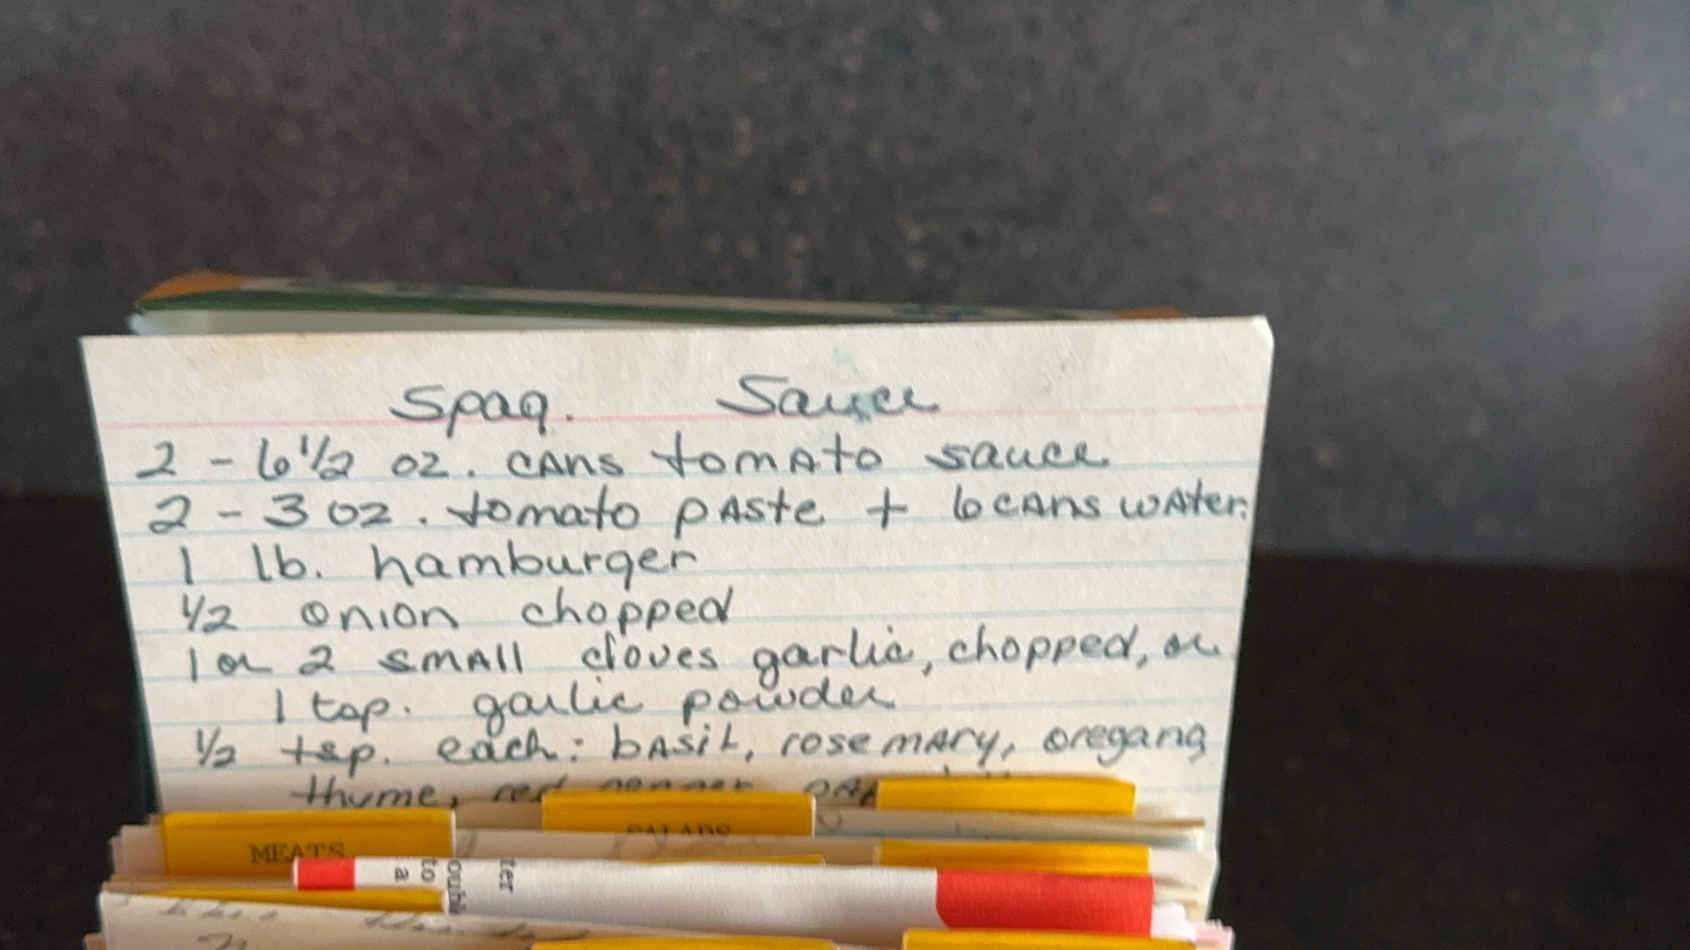 Spag. Sauce
2 - 6 1/2 oz. cans tomato sauce
2 - 3 oz. tomato paste + 6 cans water.
1 lb. hamburger
1/2 onion chopped
1 or 2 small cloves garlic, chopped, or
1 tsp. garlic powder
1/2 tsp. each: basil, rosemary, oregano,
thyme, red pepper
SALADS
MEATS
ter
to
a